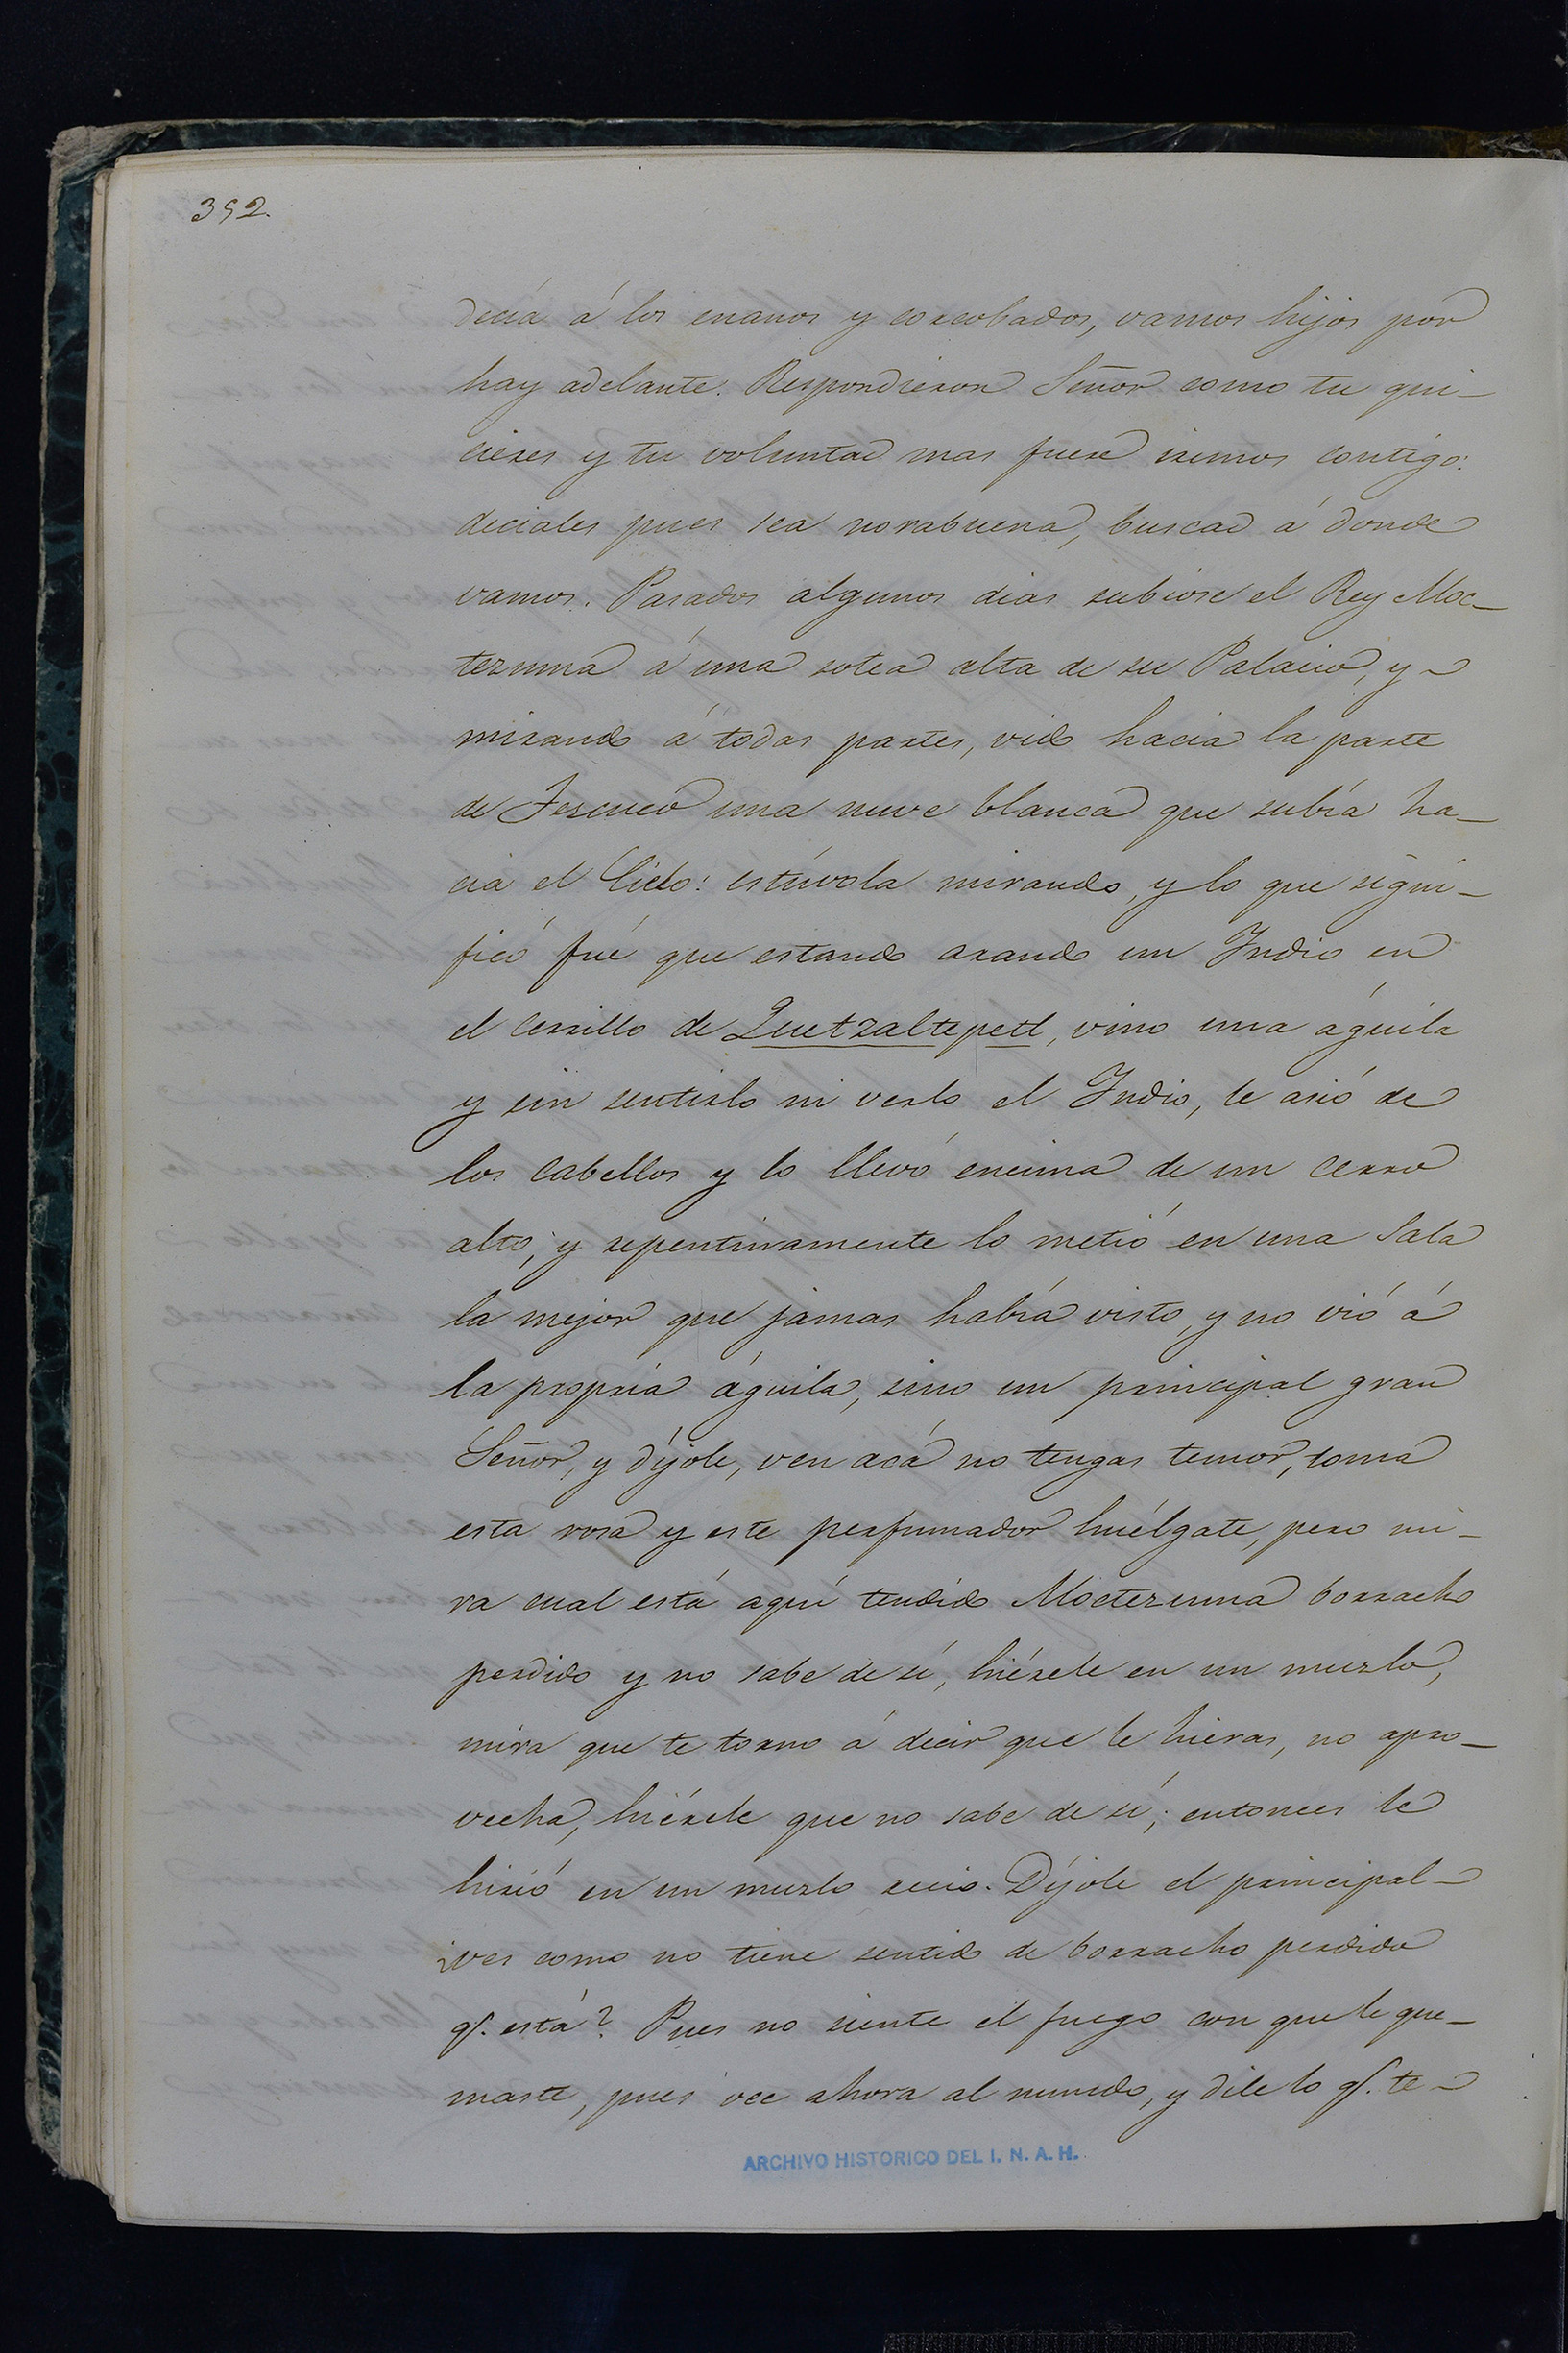 392.
decía á los enanos y corcobados, vamos hijos por
hay adelante. Respondieron Señor como tu qui-
cieres y tu voluntad mas fuere iremos contigo:
deciales pues sea norabuena, buscad á donde
vamos. Pasados algunos dias subiose el Rey Moc-
tezuma á una sotea alta de su Palacio, y
mirando á todas partes, vido hacia la parte
de Tescuco una nuve blanca que subía ha-
cia el Cielo: estúvola mirando, y lo que signi-
ficó fué que estando arando un Indio en
el Cerrillo de Quetzaltepetl, vino una águila
y sin sentirlo ni verlo el Indio, le asió de
los Cabellos y lo llevó encima de un Cerro
alto, y repentinamente lo metió en una Sala
la mejor que jamas había visto, y no vió á
la propria águila, sino un principal gran
Señor, y díjole, ven acá no tengas temor, toma
esta rosa y este perfumador huélgate, pero mi-
ra cual está aquí tendido Moctezuma borracho
perdido y no sabe de sí, hiérele en un muzlo,
mira que te torno á decir que le hieras, no apro-
vecha, hiérele que no sabe de sí; entonces le
hirió en un muzlo recio. Díjole el principal
¿ves como no tiene sentido de borracho perdido
q.e está? Pues no siente el fuego con que le que-
maste, pues vee ahora al mundo, y dile lo q.e te
ARCHIVO HISTORICO DEL I. N. A. H.